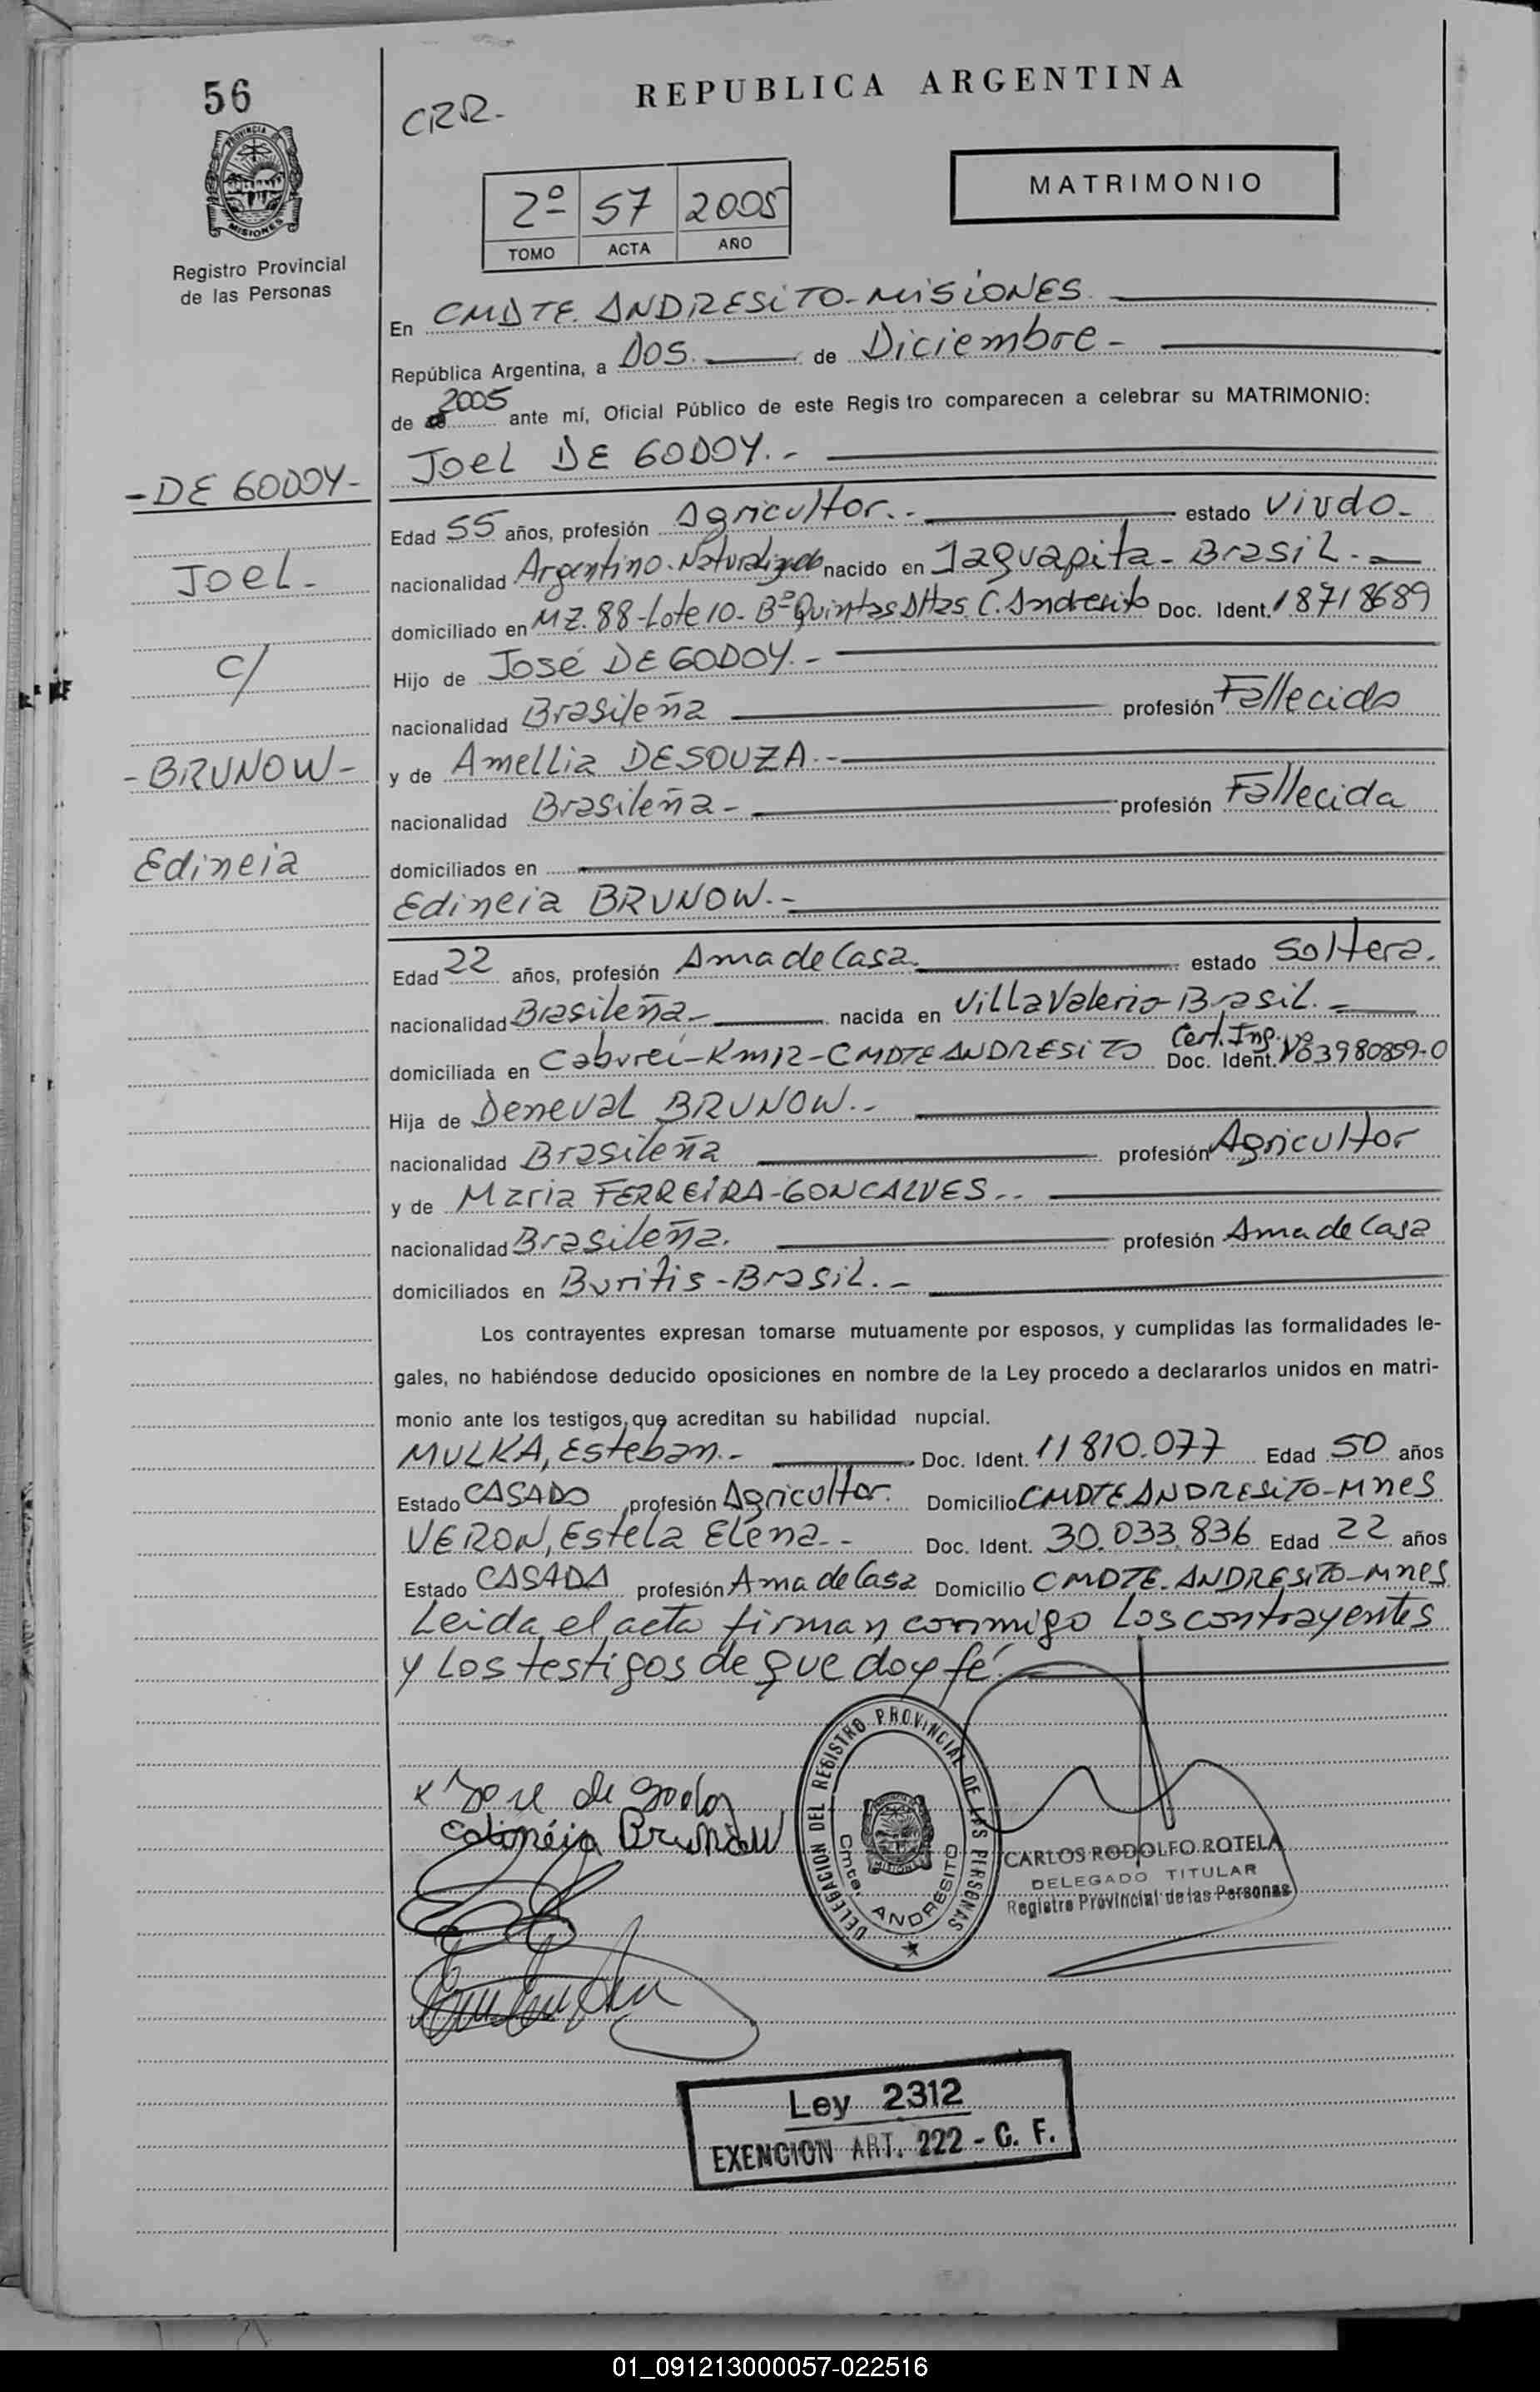 56
PROVINCIA DE
MISIONES
Registro Provincial
de las Personas
CRR.-
REPUBLICA ARGENTINA
MATRIMONIO
2º 57 2005
TOMO ACTA AÑO
En CMDTE. ANDRESITO-MISIONES
República Argentina, a DOS. de Diciembre-
de 2005 ante mí, Oficial Público de este Regis tro comparecen a celebrar su MATRIMONIO:
-DE GODOY-
Joel DE GODOY.-
Edad 55 años, profesión Agricultor.- estado Viudo-
Joel-
nacionalidad Argentino-Naturalizado nacido en Jaguapita-Brasil.-
domiciliado en MZ.88-Lote 10-Bº Quintas Altas. C. Andresito Doc. Ident. 18718689
c/
Hijo de José DE GODOY.-
nacionalidad Brasileña profesión Fallecido
-BRUNOW-
y de Amellia DE SOUZA.-
nacionalidad Brasileña- profesión Fallecida
Edineia
domiciliados en
Edineia BRUNOW.-
Edad 22 años, profesión Ama de Casa. estado Soltera.
nacionalidad Brasileña- nacida en Villa Valerio-Brasil.-
domiciliada en Caburei-Km12-CMDTE ANDRESITO Cert. Inp. Doc. Ident. V63980859-0
Hija de Deneval BRUNOW.-
nacionalidad Brasileña profesión Agricultor
y de Maria FERREIRA-GONCALVES.-
nacionalidad Brasileña. profesión Ama de Casa
domiciliados en Buritis-Brasil.-
Los contrayentes expresan tomarse mutuamente por esposos, y cumplidas las formalidades le-
gales, no habiéndose deducido oposiciones en nombre de la Ley procedo a declararlos unidos en matri-
monio ante los testigos que acreditan su habilidad nupcial.
MULKA, Esteban.- Doc. Ident. 11810.077 Edad 50 años
Estado CASADO profesión Agricultor. Domicilio CMDTE ANDRESITO-Mnes
VERON, Estela Elena.- Doc. Ident. 30.033.836 Edad 22 años
Estado CASADA profesión Ama de Casa Domicilio CMDTE. ANDRESITO-Mnes
Leida el acta firman conmigo Los contrayentes
y Los testigos de que doy fé.
DELEGACION DEL REGISTRO PROVINCIAL DE LAS PERSONAS
Cmte. ANDRESITO
MISIONES
x Joel de Godoy
Edineia Brunow
CARLOS RODOLFO ROTELA
DELEGADO TITULAR
Registro Provincial de las Personas
Ley 2312
EXENCION ART. 222 - C. F.
01_091213000057-022516